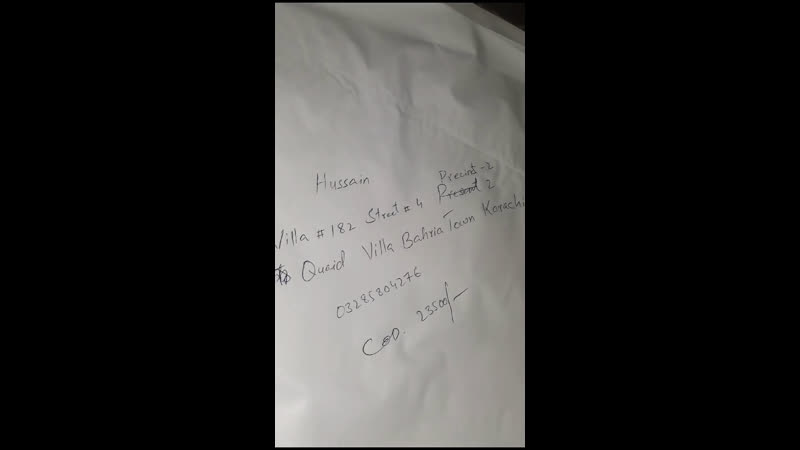 Hussain
Precinct-2
Villa # 182 Street # 4 2
Quaid Villa Bahria Town Karachi
03285804276
COD. 23500/-